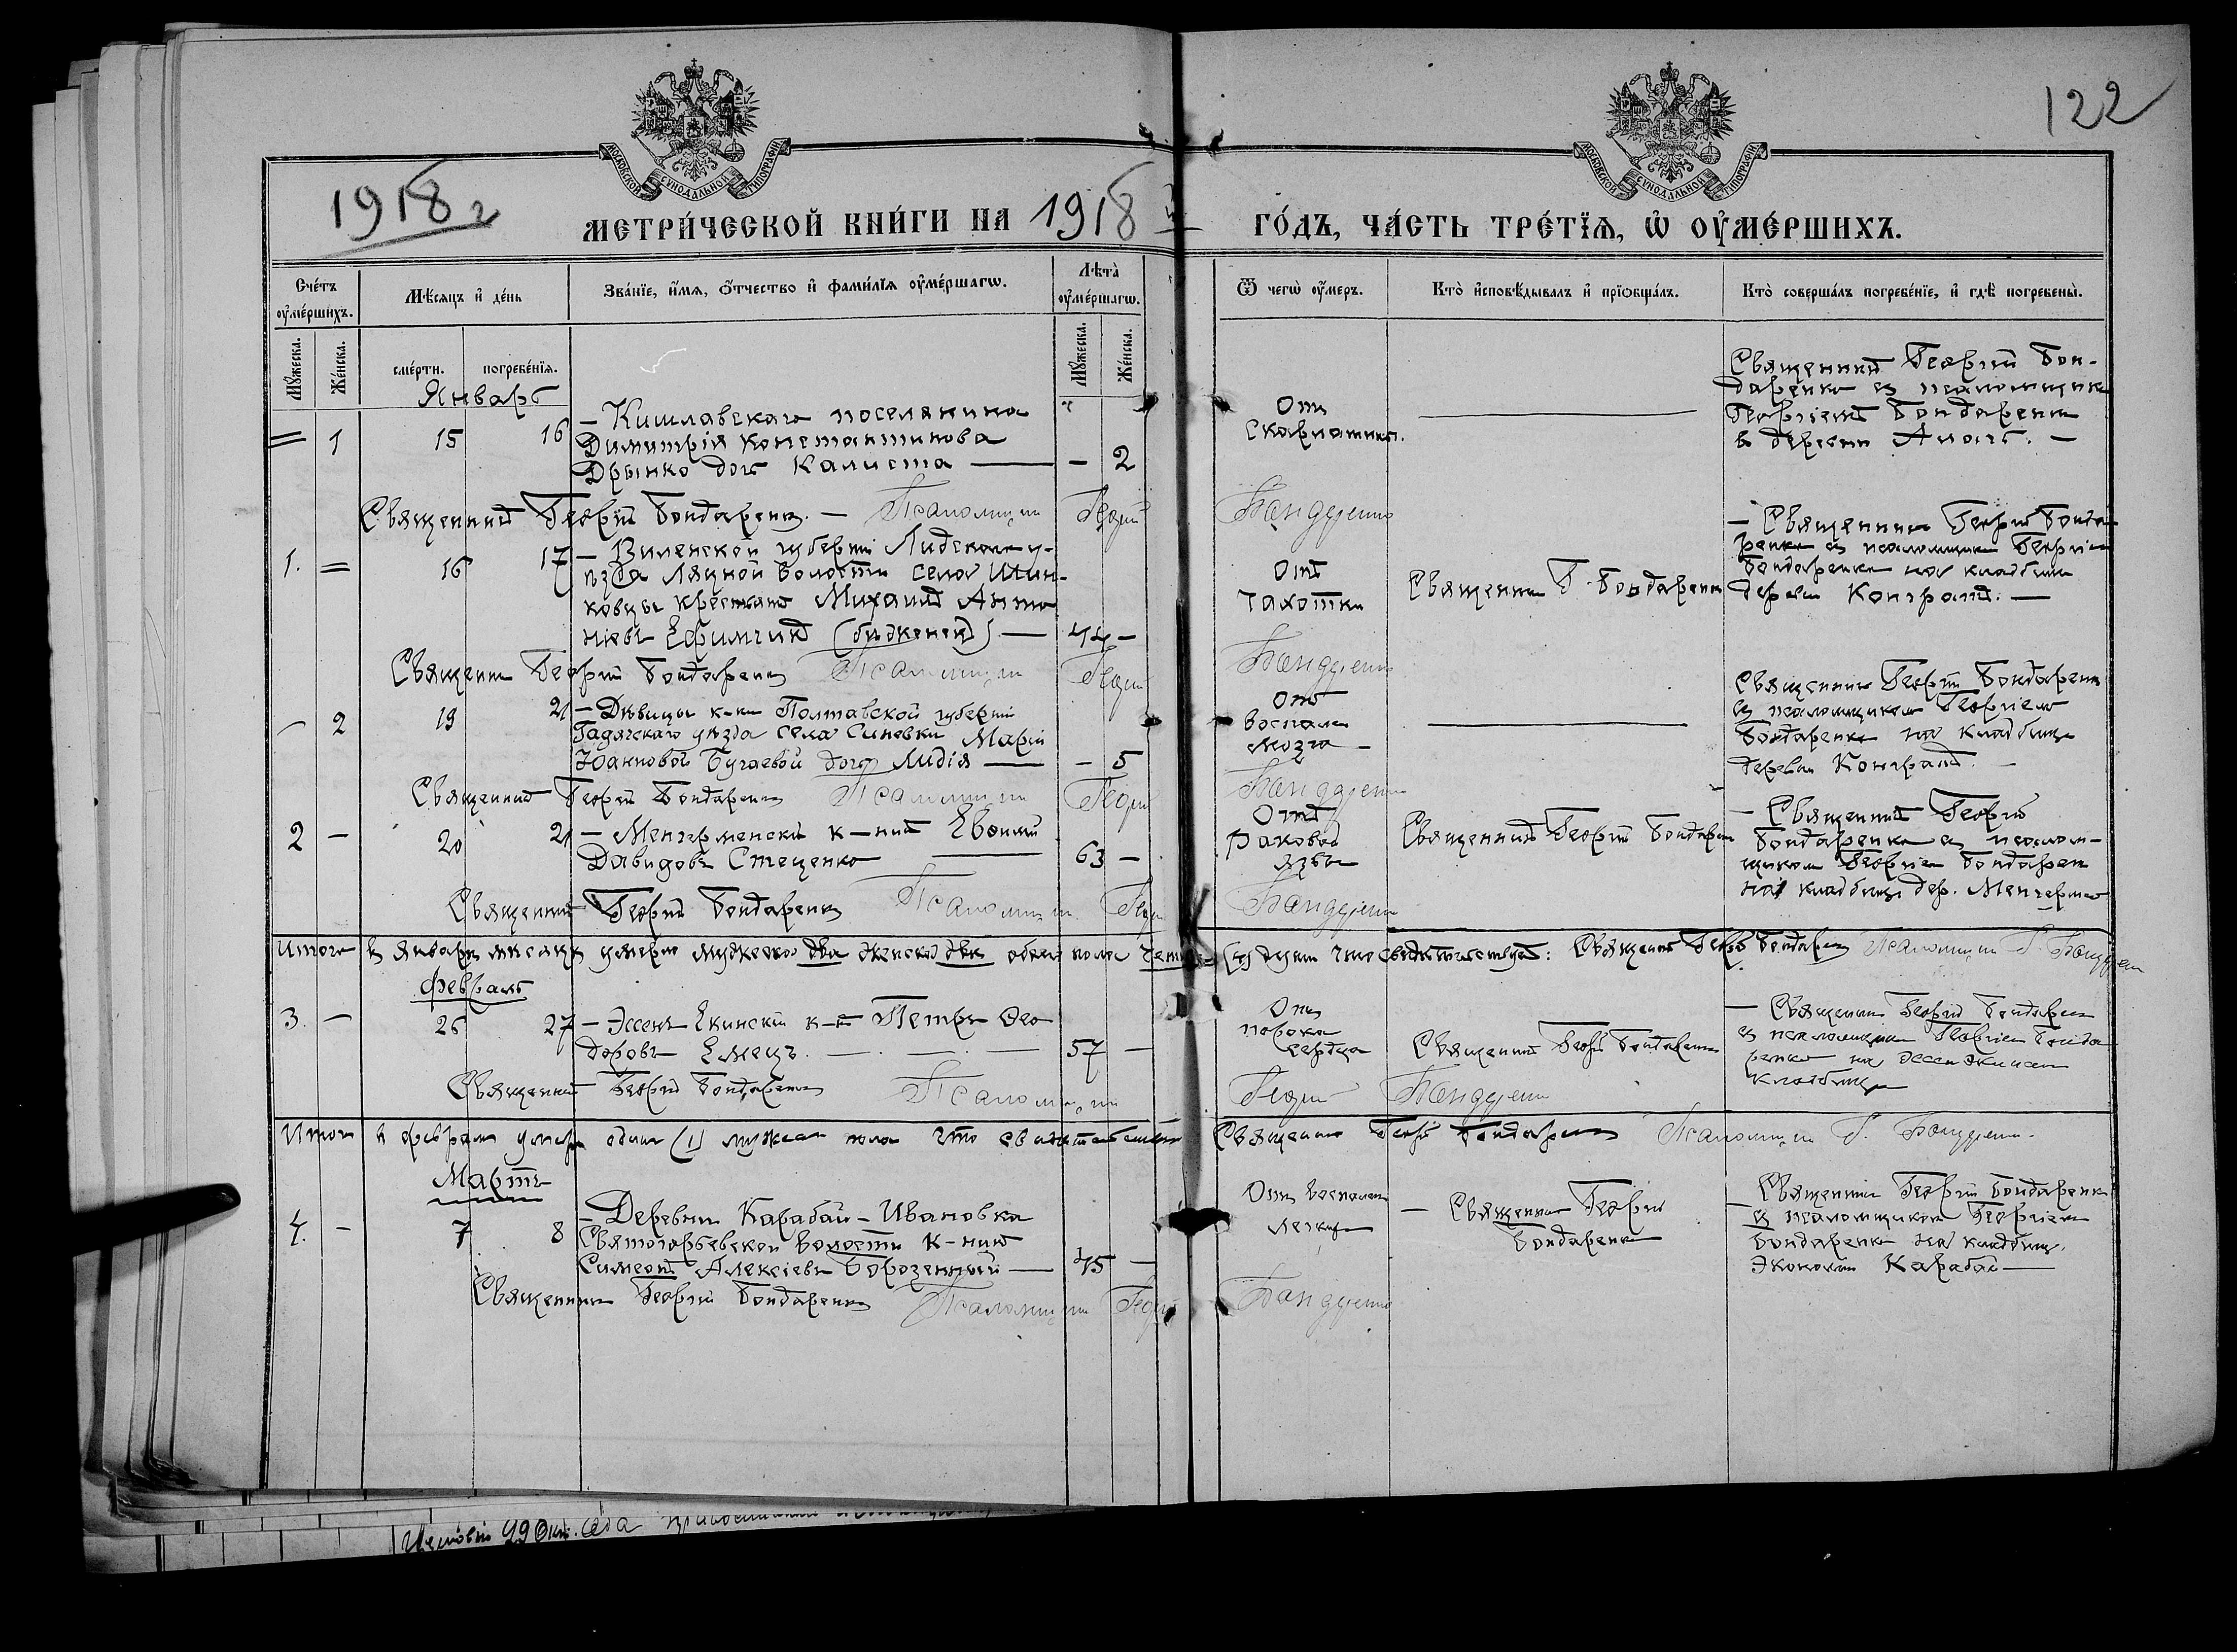 122
МОСКОВСКОЙ СУНОДАЛЬНОЙ ТИПОГРАФІИ
МОСКОВСКОЙ СУНОДАЛЬНОЙ ТИПОГРАФІИ
1918 г
МЕТРИ́ЧЕСКОЙ КНИ́ГИ НА 1918 ГО́ДЪ, ЧА́СТЬ ТРЕ́ТЇѦ, Ѡ҆ ОУ҆МЕ́РШИХЪ.
Сче́тъ оу҆ме́ршихъ.
Мѣ́сяцъ и҆ де́нь
Зва́нїе, и҆́мя, ѻ҆́тчество и҆ фами́лїя оу҆ме́ршагѡ.
Лѣ́та оу҆ме́ршагѡ.
Ѿ чегѡ̀ оу҆́меръ.
Кто̀ и҆сповѣ́дывалъ и҆ прїѡбща́лъ.
Кто̀ соверша́лъ погребе́нїе, и҆ гдѣ̀ погребены̀.
Му́жеска.
Же́нска.
сме́рти.
погребе́нїя.
Му́жеска.
Же́нска.
Январь
= 1 15 16
- Кишлавскаго поселянина
Димитрія Константинова
Дрынко дочь Калиста — - 2
Отъ
Скарлатины.
Священникъ Георгій Бон-
даренко съ псаломщикомъ
Георгіемъ Бондаренко
въ деревни
Священникъ Георгій Бондаренко. - Псаломщикъ Георгій Бондаренко
1. = 16 17
- Виленской губерніи Лидскаго у-
ѣзда Ляцкой волости села
ковцы крестьянинъ Михаилъ Анто
ніевъ Ефимчикъ (бѣженецъ) — 44 -
Отъ
чахотки
Священникъ Г. Бондаренко
- Священникъ Георгій Бонда-
ренко съ псаломщикомъ Георгіемъ
Бондаренко на кладбищѣ
деревни Конградъ. —
Священникъ Георгій Бондаренко Псаломщикъ Георгій Бондаренко
- 2 19 21
- Дѣвицы к-ки Полтавской губерніи
Гадячскаго уѣзда села Синевки Маріи
Іоанновой Бугаевой дочь Лидія — - 5
Отъ
воспален
мозга -
Священникъ Георгій Бондаренко
съ псаломщикомъ Георгіемъ
Бондаренко на кладбищѣ
деревни Конградъ. -
Священникъ Георгій Бондаренко Псаломщикъ Георгій Бондаренко
2 - 20 21
- Менгерменскій к-нинъ Евѳимій
Давидовъ Стеценко — 63 -
Отъ
Раковой
язвы
Священникъ Георгій Бондаренко
- Священникъ Георгій
Бондаренко съ псалом-
щикомъ Георгіемъ Бондарен
на кладбищѣ дер. Менгермен
Священникъ Георгій Бондаренко Псаломщикъ Георгій Бондаренко
Итого въ Январѣ мѣсяцѣ умерло мужеска два женска двѣ обоего пола четыре (4) души что свидѣтельствуетъ: Священникъ Георгій Бондаренко Псаломщикъ Г. Бондаренко
Февраль
3. - 26 27
- Эссенъ Екинскій к-нъ Петръ Ѳео
доровъ Емецъ. — 57 -
Отъ
порока
сердца
Священникъ Георгій Бондаренко
- Священникъ Георгій Бондаренко
съ псаломщикомъ Георгіемъ Бонда
ренко на Эссенъ Экинском
кладбищѣ
Священникъ Георгій Бондаренко Псаломщикъ Георгій Бондаренко
Итого въ февралѣ умеръ одинъ (1) мужеска пола что свидѣтельствуетъ Священникъ Георгій Бондаренко Псаломщикъ Г. Бондаренко.
Мартъ
4. - 7 8
- Деревни Карабай-Ивановка
Святогорьевской волости к-нинъ
Симеонъ Алексіевъ Борозенный — 45 -
Отъ воспален
легких
- Священникъ Георгій
Бондаренко
- Священникъ Георгій Бондаренко
съ псаломщикомъ Георгіемъ
Бондаренко на кладбищѣ
Экономіи Карабай —
Священникъ Георгій Бондаренко Псаломщикъ Георгій Бондаренко